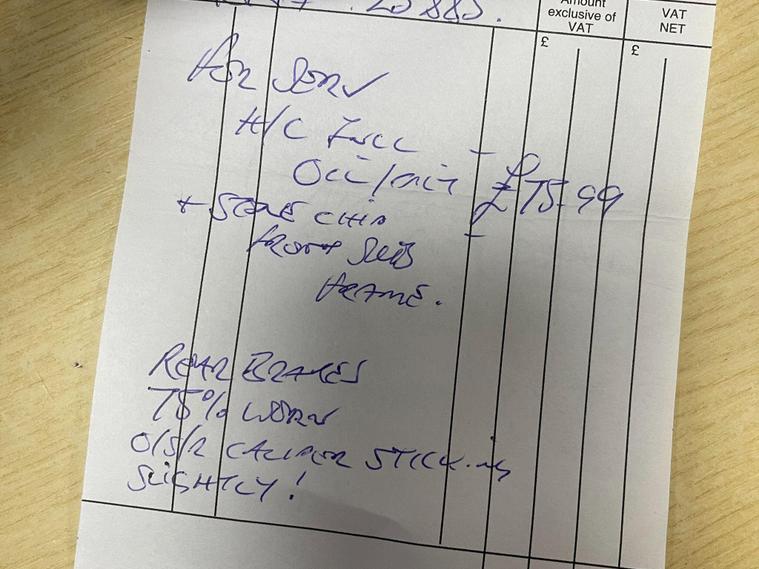 20885.
Amount
exclusive of
VAT
VAT
NET
£ £
FOR SERV
H/C FULL -
OIL/ £75-99
+ STONE CHIP -
FRONT SUB
FRAME.
REAR BRAKES
75% WORN
O/S/R CALIPER STICKING
SLIGHTLY!